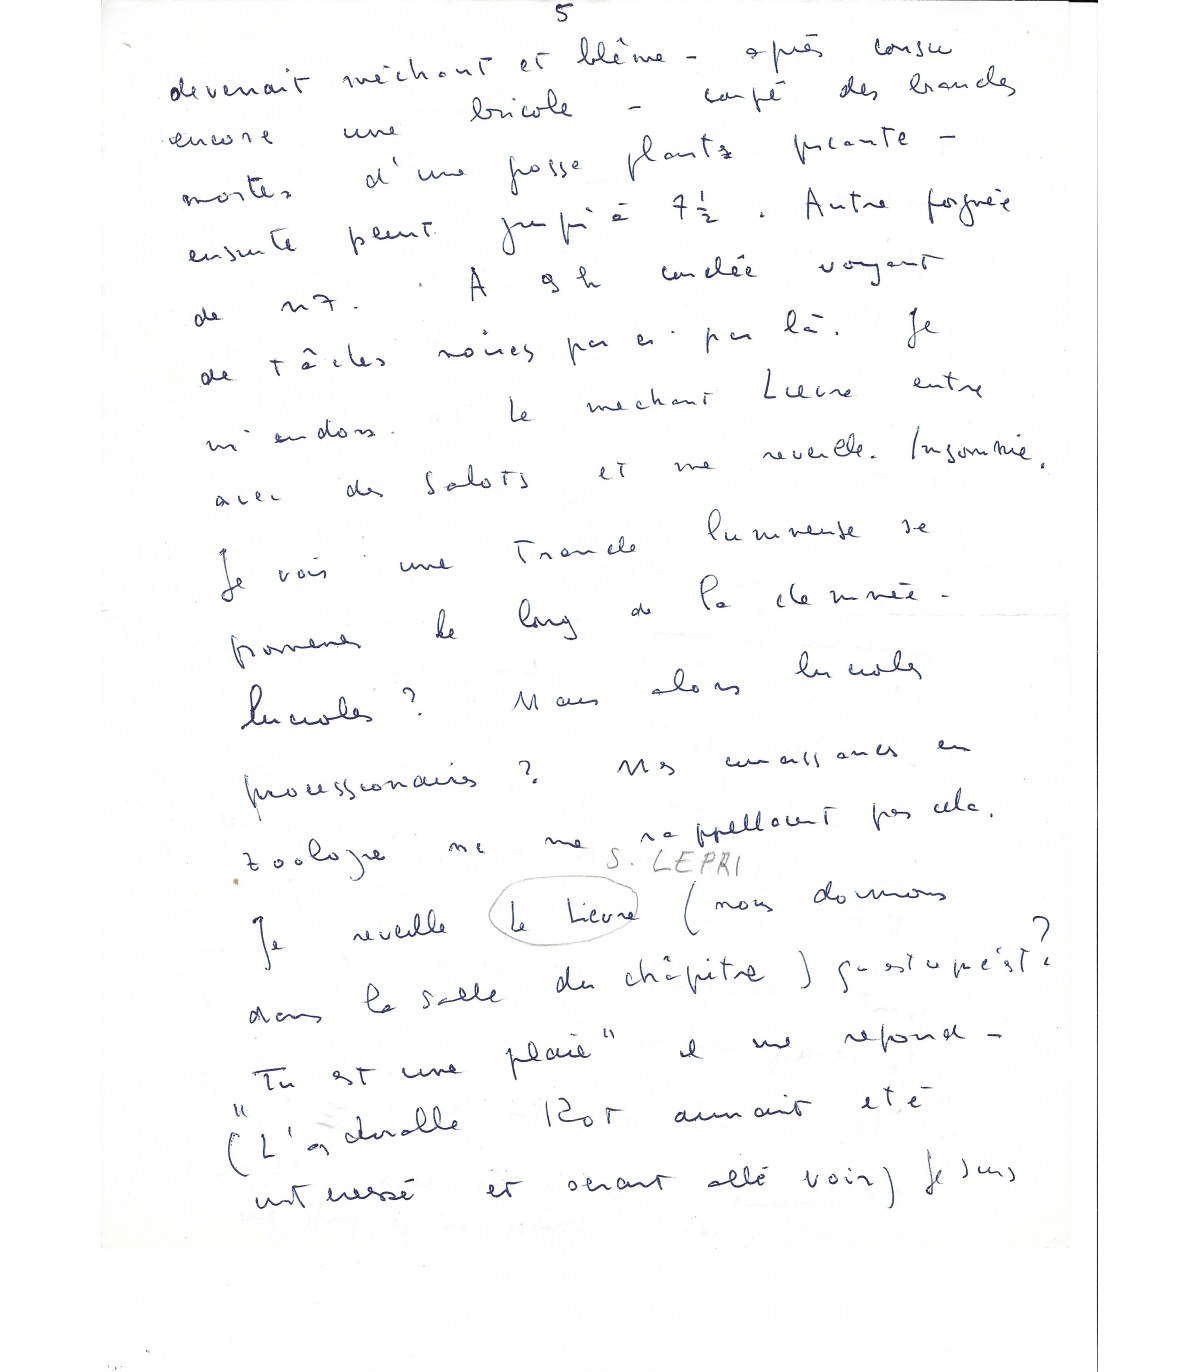 5
devenait méchant et blême - après cousu
encore une bricole - coupé des branches
mortes d'une grosse plante piquante -
ensuite peint jusqu'à 7½. Autre poignée
de n7. A 9h couchée voyant
de tâches noires par ci par là. Je
m'endors. Le mechant Lievre entre
avec des sabots et me reveille. Insomnie.
Je vois une Tranche lumineuse se
promener le long de la cheminée -
lucioles ? Mais alors lucioles
processionaires ? Mes connaissances en
zoologie ne me rappellaient pas cela.
S. LEPRI
Je reveille le Lievre (nous dormons
dans la salle du châpitre) qu'est ce que c'est ?
"Tu est une plaie" il me repond -
(L'adorable Kot aurait eté
interessé et serait allé voir) Je suis